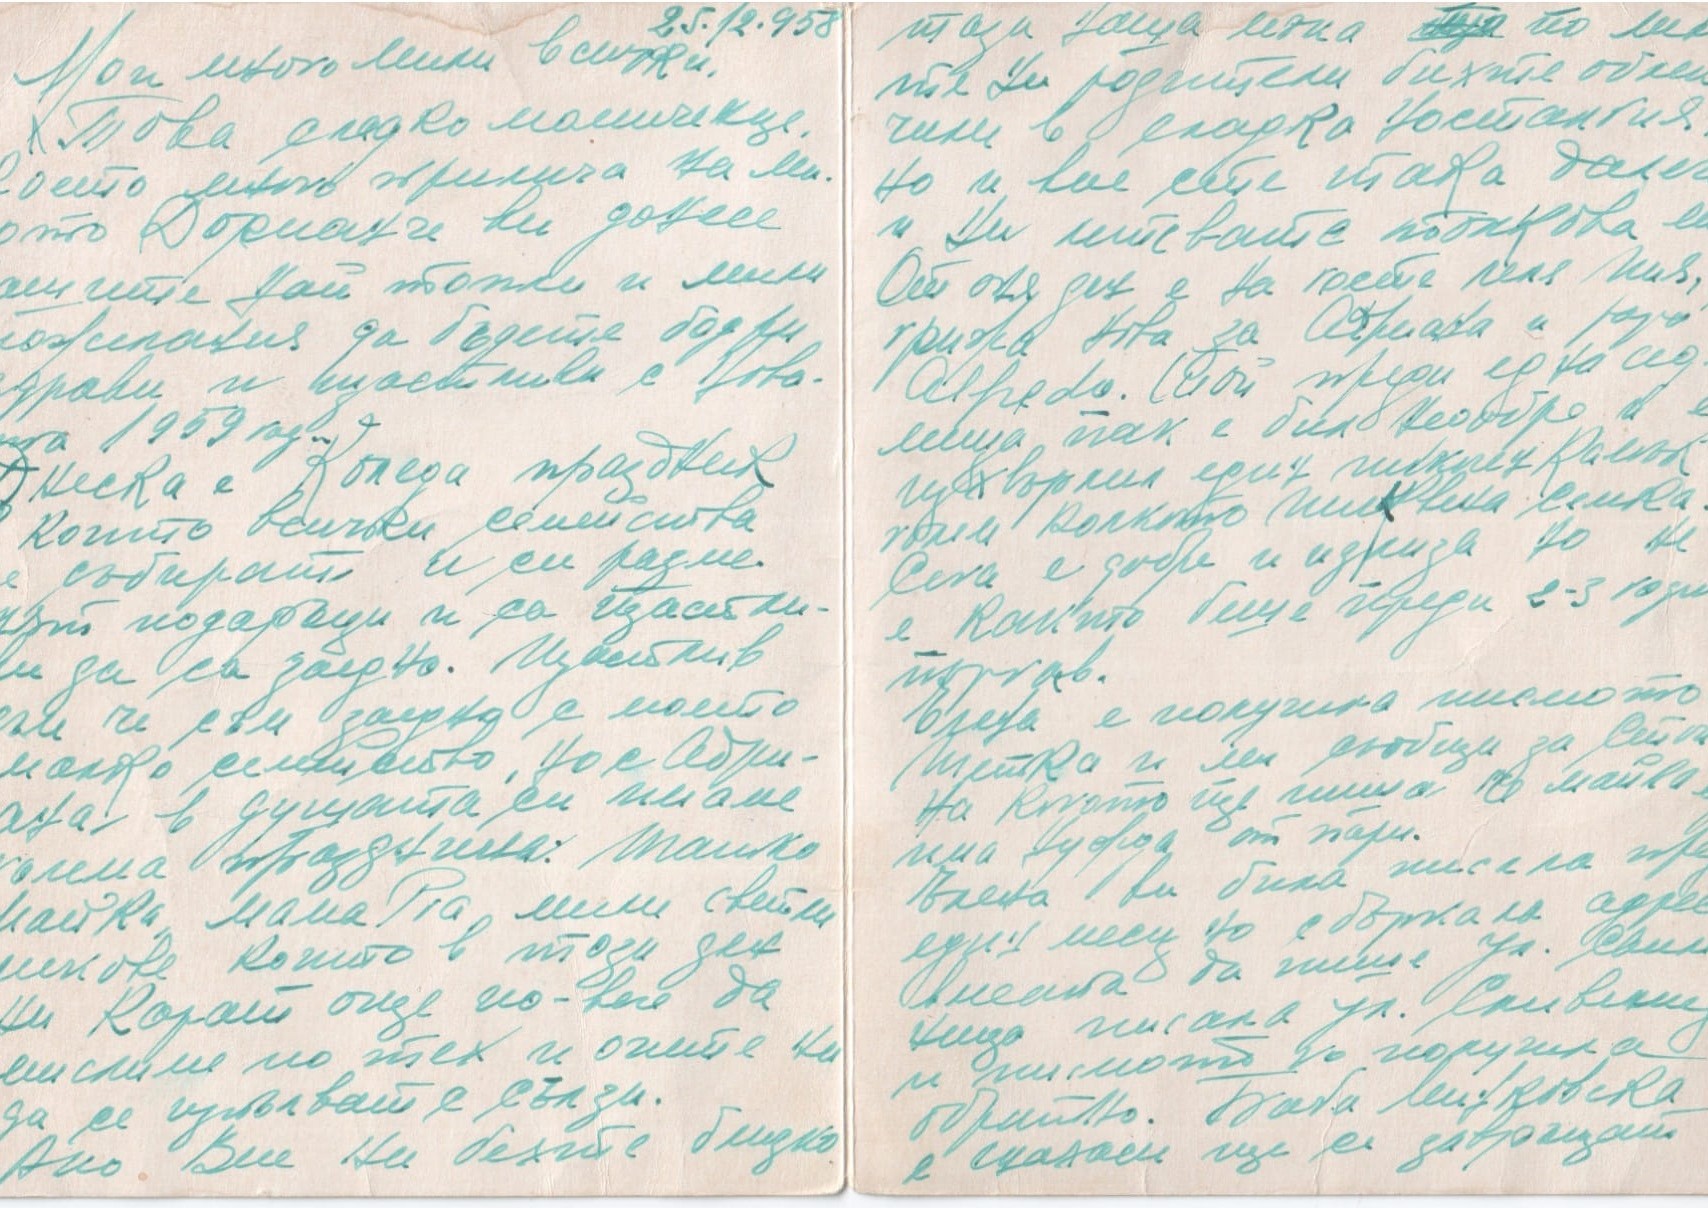 25.12.958
Мои много мили всички,
Това сладко момиченце,
което много прилича на ми-
лото Дорианче ви донася
нашите най топли и мили
пожелания да бъдете бодри
здрави и щастливи с нова-
та 1959 год.
Днеска е Коледа праздник
в който всички семейства
се събират и си разме-
нят подаръци и са щастли-
ви да са заедно. Щастлив
съм че съм заедно с моето
малко семейство, но с Адри-
ана, в душата си имаме
голяма празднина: Татко
майка, мама Рта, мили
които в този ден
ни карат още по-вече да
мислим по тех и очите ни
да се изпълват с сълзи.
Ако Вие ни бехте близко
тази наша мъка по ми-
те ни родители бихте облек
чили в сладка носталгия
но и вие сте така далеч
и ни липсвате
От оня ден е на гости леля
грижа нова за Адриана и
Alfredo. (Той преди една сед
мица пак е бил недобре и е
изхвърлил един камък
голем колкото семка
Сега е добре и излиза но не
е както беше преди 2-3 годи
пъргав.
Влеза е получила писмото
и ми съобщи за
На която ще пиша че майка
има нужда от пари.
Влеза ви била писала пре
един месец но сбъркала адре
вместо да пише ул.
ница писала ул. Сливенска
и писмото го получила
обратно. Баба Минковска
е ще се завръщат